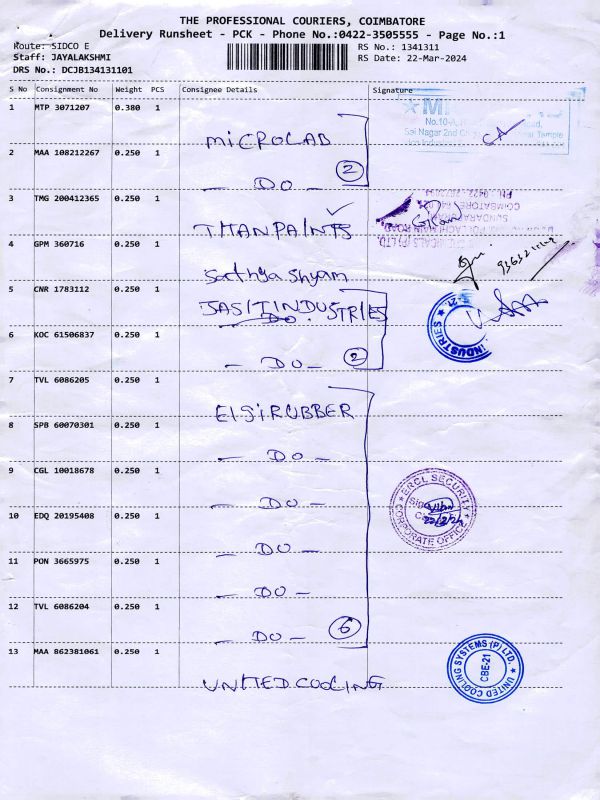 THE PROFESSIONAL COURIERS, COIMBATORE
Delivery Runsheet - PCK - Phone No.:0422-3505555 - Page No.:1
Route: SIDCO E
RS No.: 1341311
Staff: JAYALAKSHMI
RS Date: 22-Mar-2024
DRS No.: DCJB134131101
S No Consignment No Weight PCS Consignee Details Signature
1 MTP 3071207 0.380 1 MICROLAB
No.10-A,
Sai Nagar 2nd
Temple
2 MAA 108212267 0.250 1 - DO - 2
3 TMG 200412365 0.250 1 TITAN PAINTS
4 GPM 360716 0.250 1 Sathya Shyam
5 CNR 1783112 0.250 1 JASIT INDUSTRIES
DO
INDUSTRIES
6 KOC 61506837 0.250 1 - DO - 2
7 TVL 6086205 0.250 1 ELSI RUBBER
8 SPB 60070301 0.250 1 - DO -
9 CGL 10018678 0.250 1 - DO -
ERCL SECURITY
CORPORATE OFFICE
22/3/24
10 EDQ 20195408 0.250 1 - DO -
11 PON 3665975 0.250 1 - DO -
12 TVL 6086204 0.250 1 - DO - 6
13 MAA 862381061 0.250 1 UNITED COOLING
UNITED COOLING SYSTEMS (P) LTD.
CBE-21